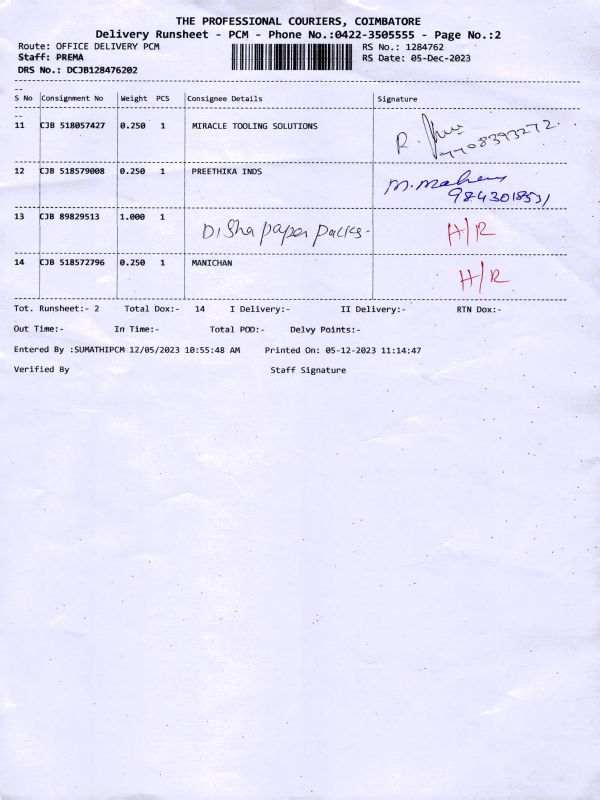 THE PROFESSIONAL COURIERS, COIMBATORE
Delivery Runsheet - PCM - Phone No.:0422-3505555 - Page No.:2
Route: OFFICE DELIVERY PCM RS No.: 1284762
Staff: PREMA RS Date: 05-Dec-2023
DRS No.: DCJB128476202
--
S No Consignment No Weight PCS Consignee Details Signature
--
11 CJB 518057427 0.250 1 MIRACLE TOOLING SOLUTIONS R.
7708393272
12 CJB 518579008 0.250 1 PREETHIKA INDS M. Mahen
9843018531
13 CJB 89829513 1.000 1 Disha paper packs- H/R
14 CJB 518572796 0.250 1 MANICHAN H/R
Tot. Runsheet:- 2 Total Dox:- 14 I Delivery:- II Delivery:- RTN Dox:-
Out Time:- In Time:- Total POD:- Delvy Points:-
Entered By :SUMATHIPCM 12/05/2023 10:55:48 AM Printed On: 05-12-2023 11:14:47
Verified By Staff Signature